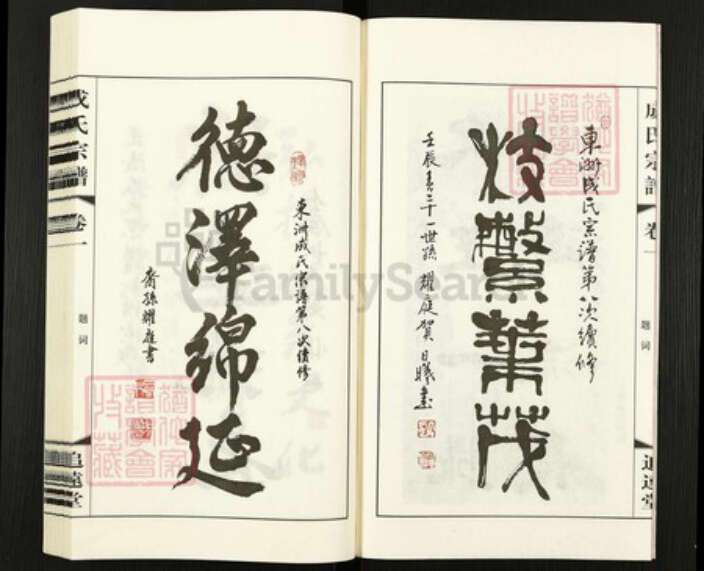 東洲成氏宗譜第八次續修
枝繁葉茂
壬辰春二十一世孫 耀庭賀 日曦書
成氏宗譜
卷一
題词
追遠堂
東洲成氏宗譜第八次續修
德澤綿延
裔孫耀庭書
成氏宗譜
卷一
題词
追遠堂
FamilySearch